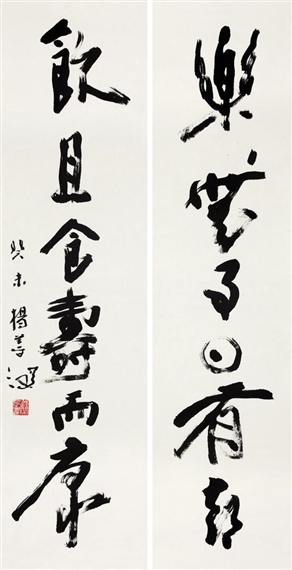 樂無事日有喜
飲且食壽而康
癸未楊善深